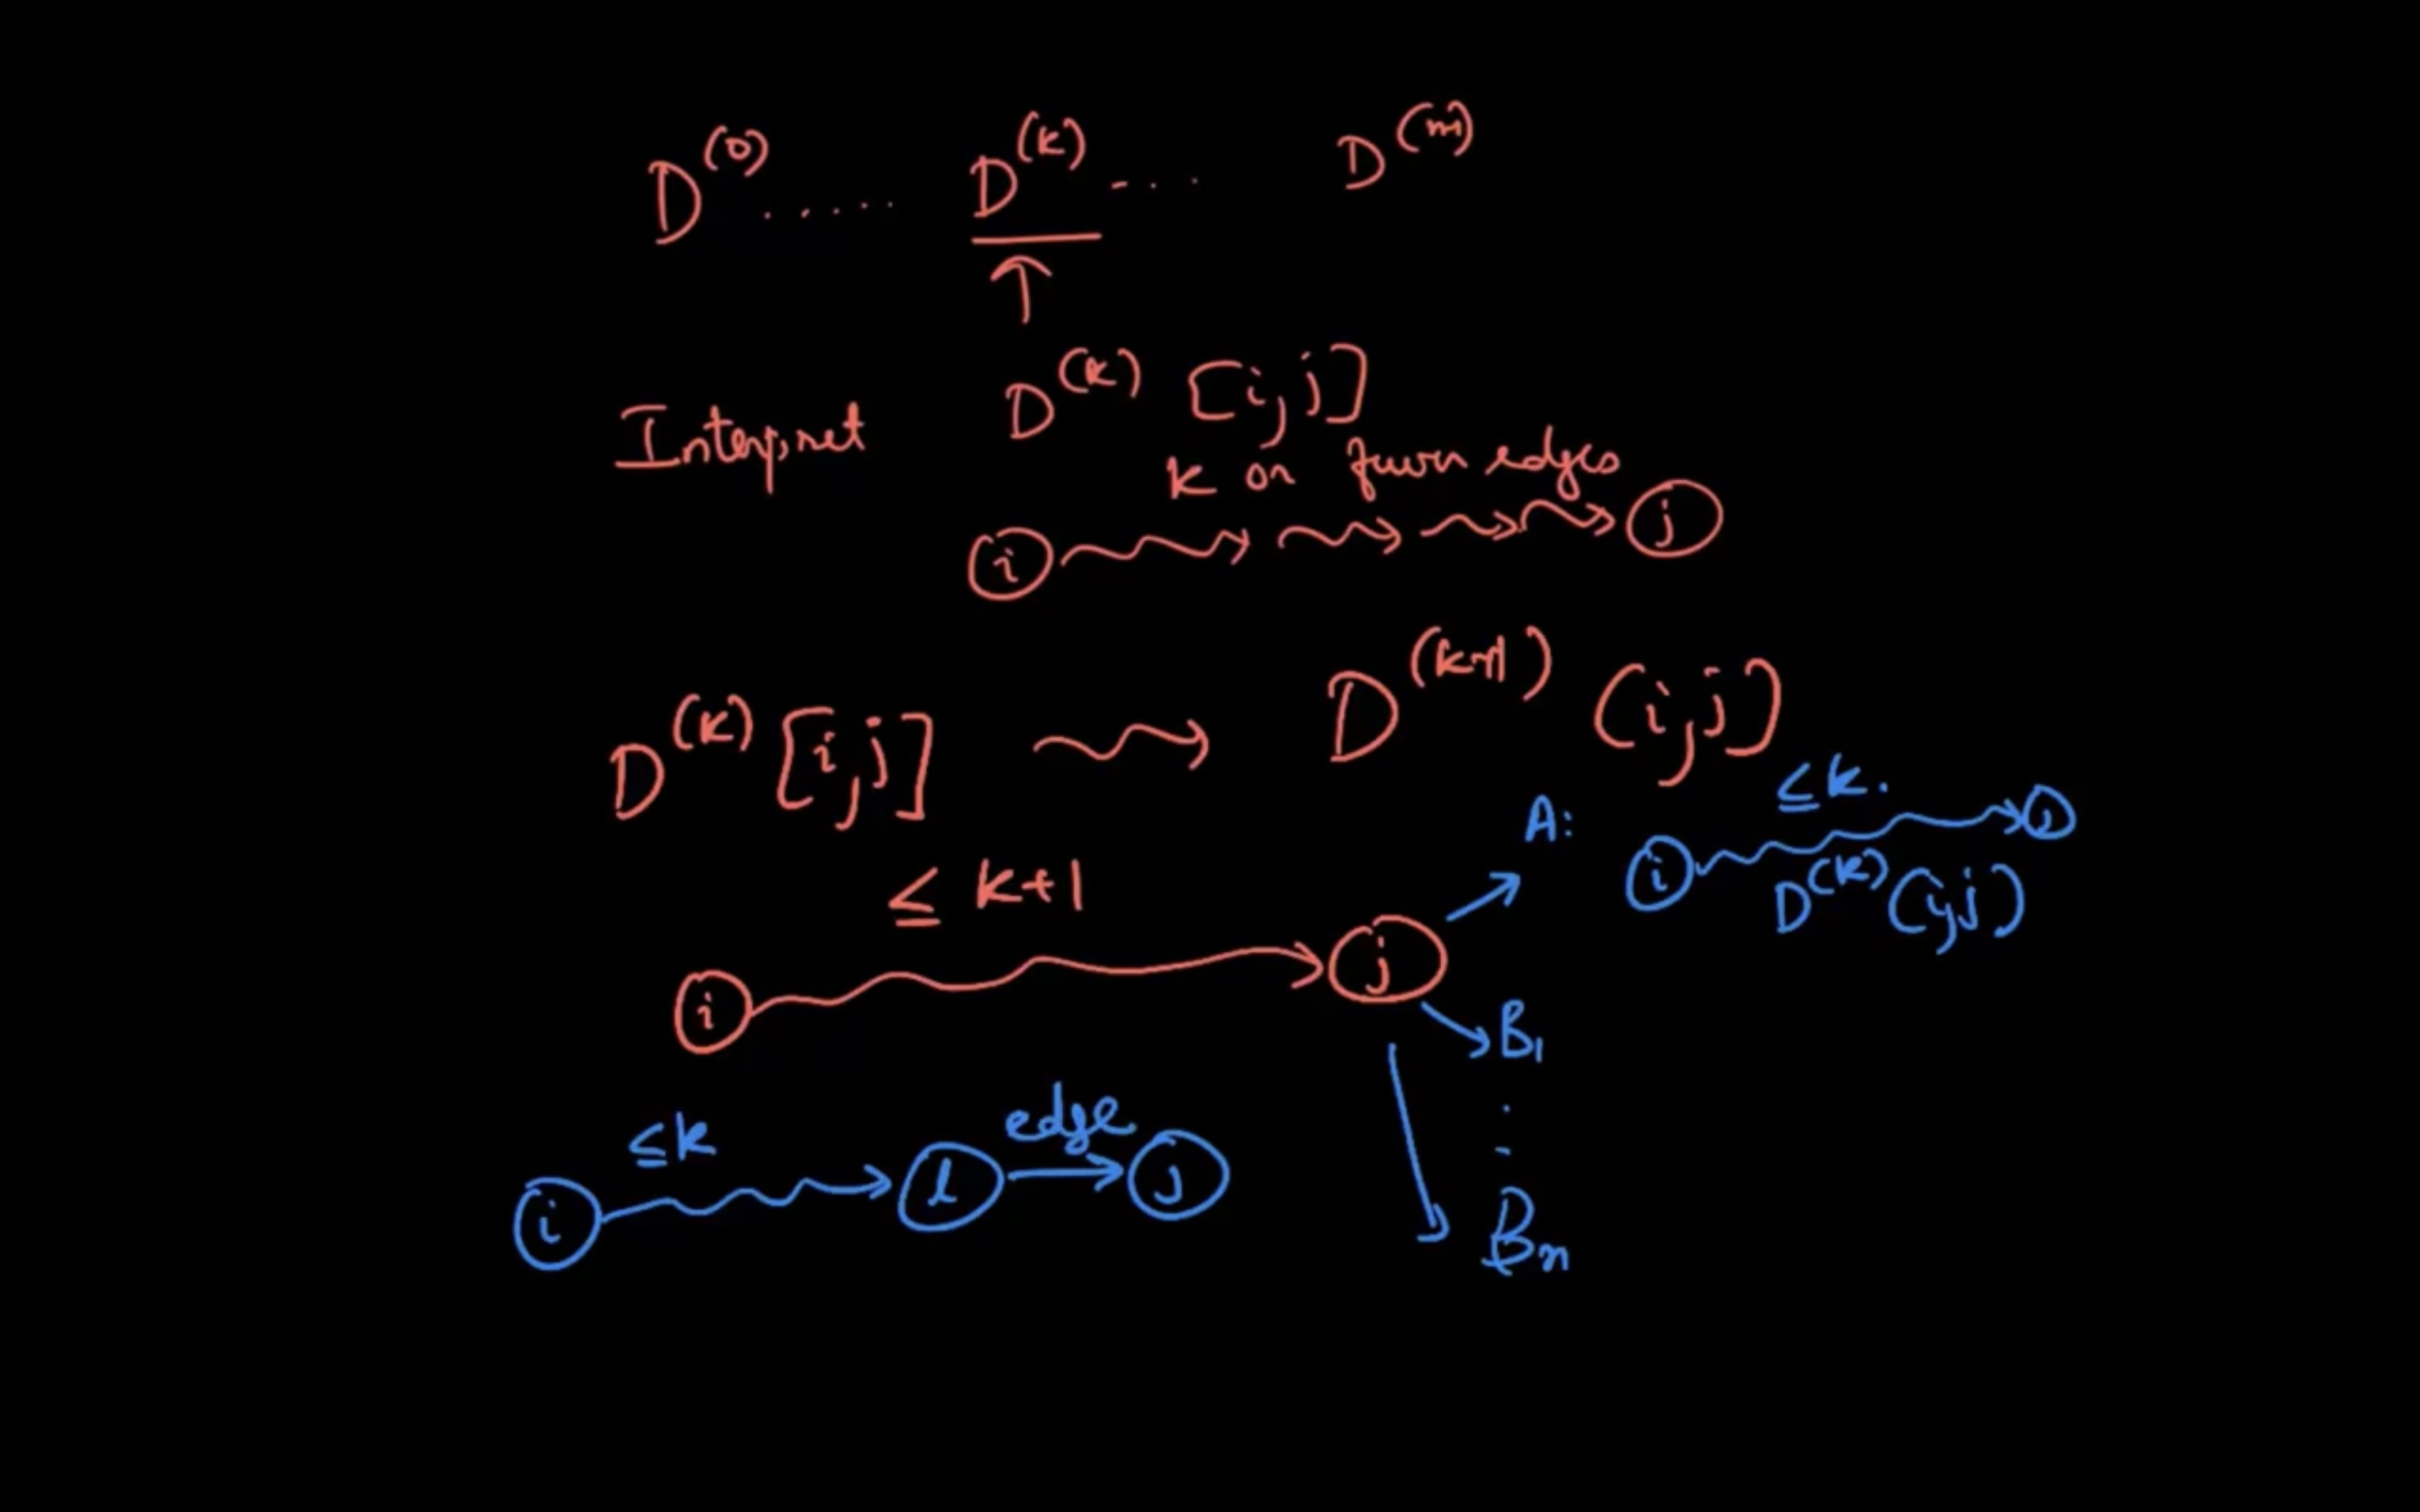 D^(0) ..... D^(k) ... D^(m)
Interpret D^(k) [i,j]
k or fewer edges
i j
D^(k) [i,j] D^(k+1) (i,j)
≤ k.
A: i j
D^(k) (i,j)
≤ k+1
i j
B1
.
.
Bn
≤k edge
i l j